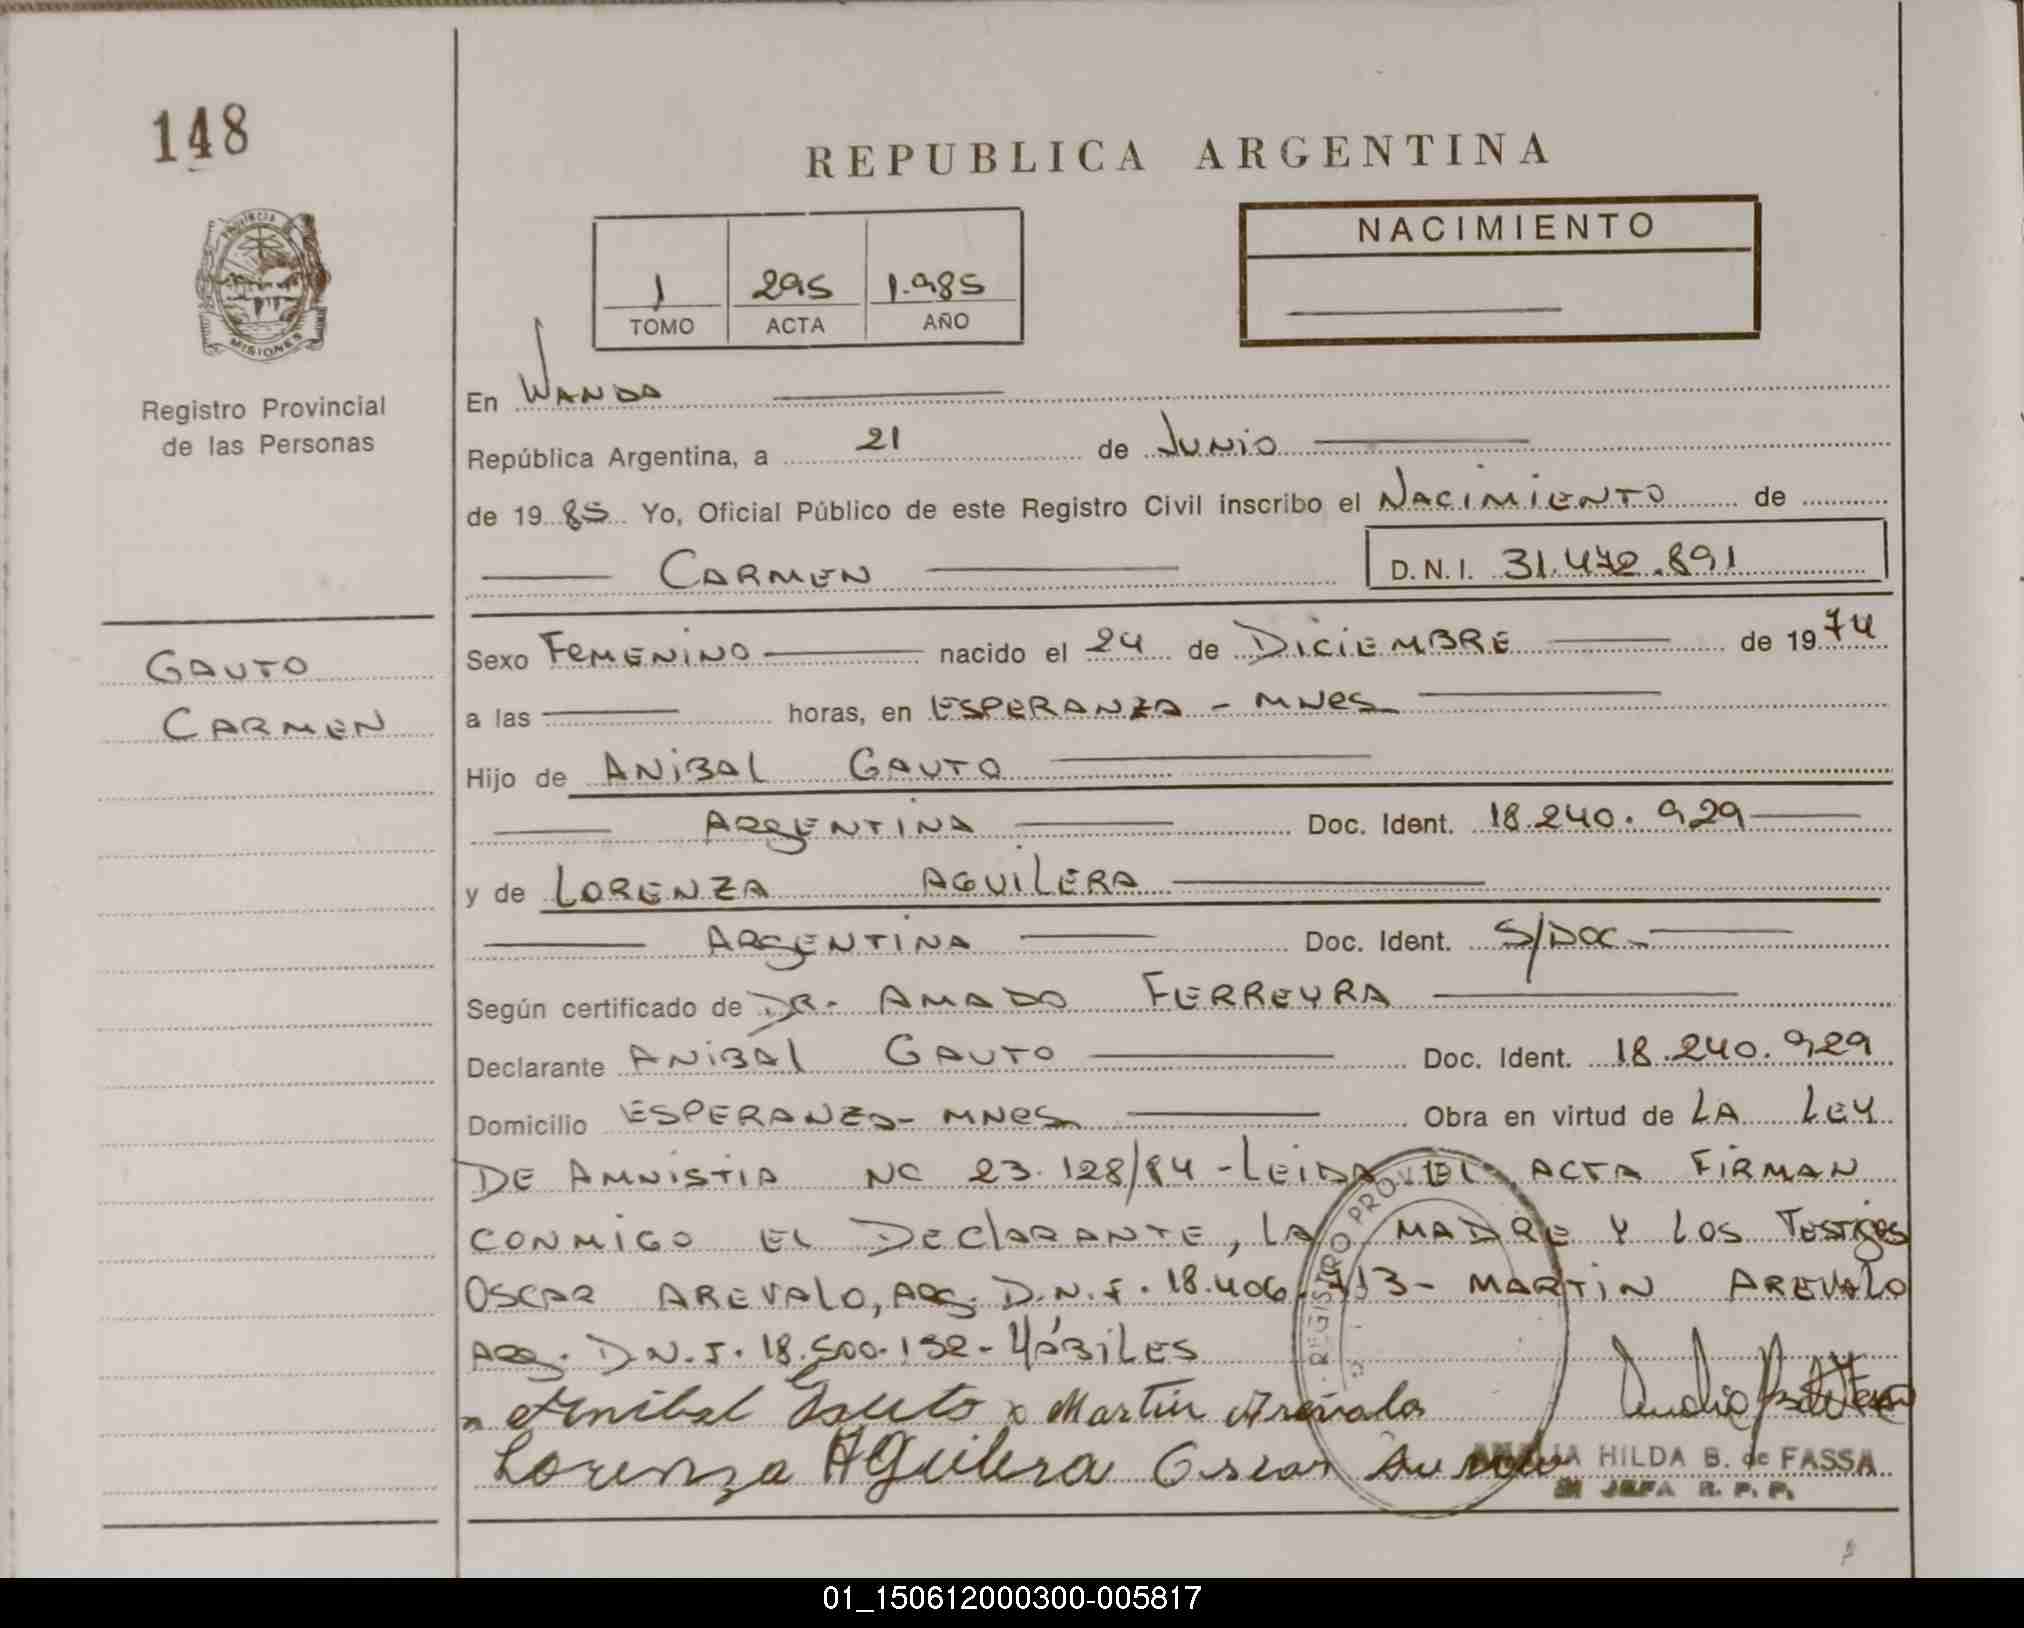 148
REPUBLICA ARGENTINA
NACIMIENTO
1 295 1.985
TOMO ACTA AÑO
PROVINCIA DE
MISIONES
Registro Provincial
de las Personas
En WANDA
República Argentina, a 21 de JUNIO
de 1985 Yo, Oficial Público de este Registro Civil inscribo el NACIMIENTO de
CARMEN D.N.I. 31.472.891
GAUTO
CARMEN
Sexo FEMENINO nacido el 24 de DICIEMBRE de 1974
a las horas, en ESPERANZA - MNES
Hijo de ANIBAL GAUTO
ARGENTINA Doc. Ident. 18.240.929
y de LORENZA AGUILERA
ARGENTINA Doc. Ident. S/DOC
Según certificado de DR. AMADO FERREYRA
Declarante ANIBAL GAUTO Doc. Ident. 18.240.929
Domicilio ESPERANZA - MNES Obra en virtud de LA LEY
DE AMNISTIA NC 23.128/84 - LEIDA EL ACTA FIRMAN
CONMIGO EL DECLARANTE, LA MADRE Y LOS TESTIGOS
OSCAR AREVALO, ARG. D.N.I. 18.406.713 - MARTIN AREVALO
ARG. D.N.I. 18.500.132 - HÁBILES
Anibal Gauto x Martin Arevalo
Lorenza Aguilera Oscar
HILDA B. de FASSA
JEFA R. P. P.
REGISTRO PROV
01_150612000300-005817